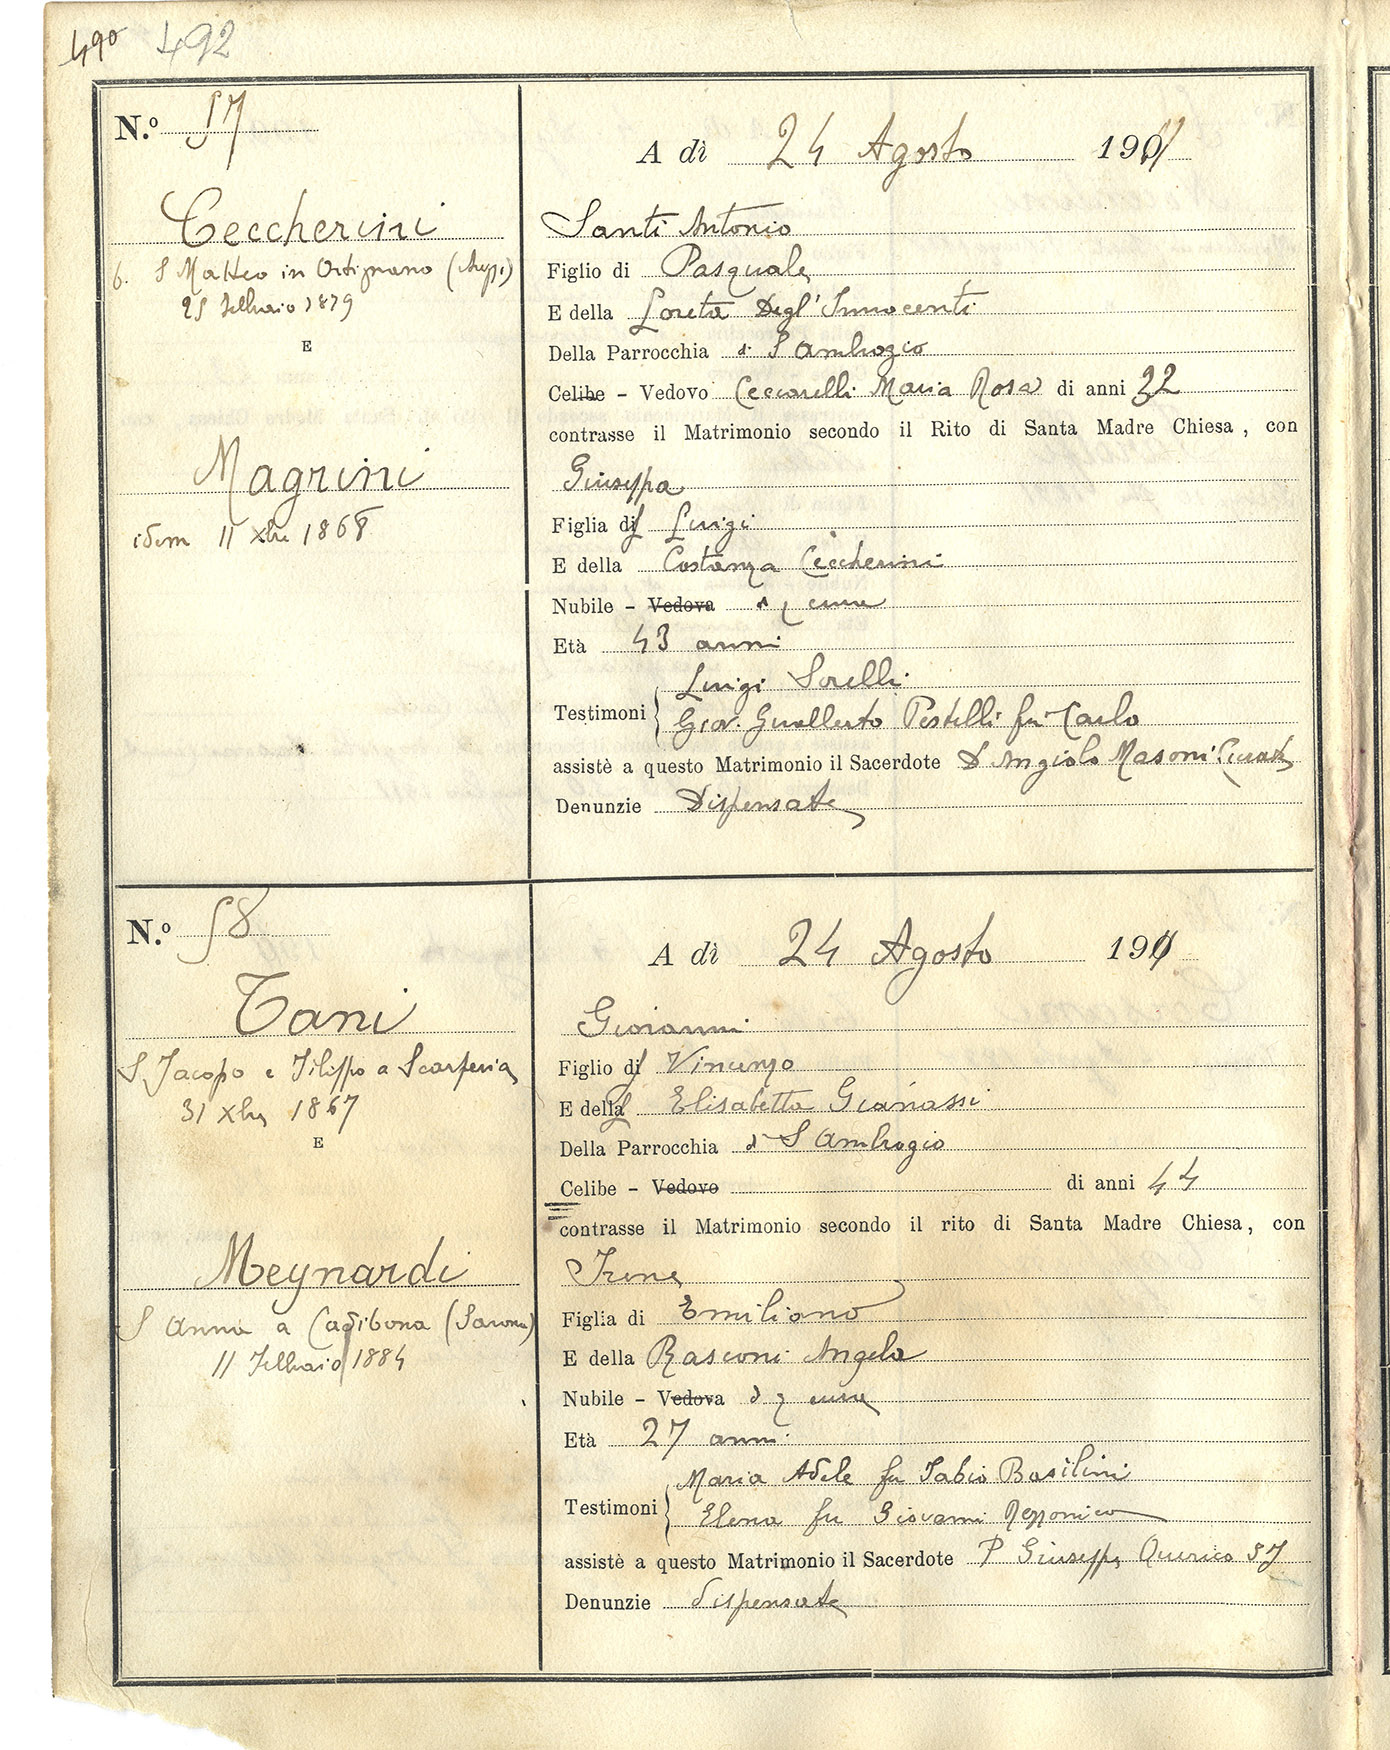 490 492
N.º 57
Ceccherini
b. S Matteo in Ortignano
25 Febbraio 1879
E
Magrini
idem 11 Xbre 1868
A dì 24 Agosto 1911
Santi Antonio
Figlio di Pasquale
E della Loreta Degl'Innocenti
Della Parrocchia di S Ambrogio
Celibe - Vedovo Ceccarelli Maria Rosa di anni 32
contrasse il Matrimonio secondo il Rito di Santa Madre Chiesa, con
Giuseppa
Figlia di f Luigi
E della Costanza Ceccherini
Nubile - Vedova di q cura
Età 43 anni
Luigi Sorelli
Testimoni
Giov. Gualberto Pestelli fu Carlo
assistè a questo Matrimonio il Sacerdote D Angiolo Masoni Curato
Denunzie Dispensate
N.º 58
Tani
S Jacopo e Filippo a Scarperia
31 Xbre 1867
E
Meynardi
S Anna a Cadibona (Savona)
11 Febbraio 1884
A dì 24 Agosto 1911
Giovanni
Figlio di f Vincenzo
E della f Elisabetta Gianassi
Della Parrocchia di S Ambrogio
Celibe - Vedovo di anni 44
contrasse il Matrimonio secondo il rito di Santa Madre Chiesa, con
Irene
Figlia di Emiliano
E della Rasconi Angela
Nubile - Vedova di q cura
Età 27 anni
Maria Adele fu Fabio Basilini
Testimoni
Elena fu Giovanni Rezzonico
assistè a questo Matrimonio il Sacerdote P Giuseppe Querico SJ
Denunzie dispensate